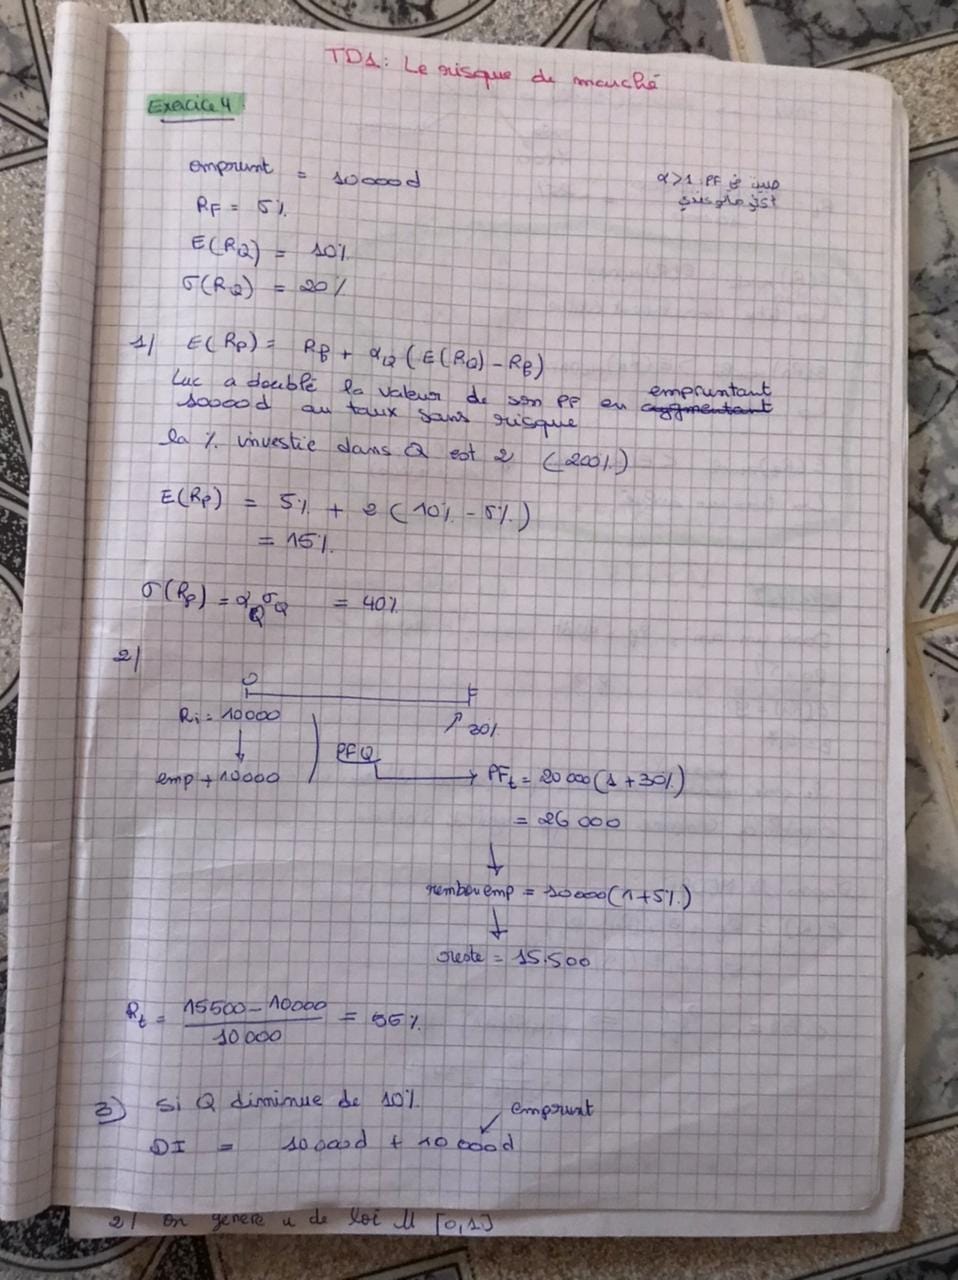 TD1: Le risque de marché
Exercice 4:
emprunt = 10000d
α>1 PF
RF = 5%
E(RQ) = 10%
σ(RQ) = 20%
1/ E(Rp) = Rf + αQ (E(RQ) - Rf)
Luc a doublé la valeur de son PF en empruntant augmentant
10000d au taux sans risque
la % investie dans Q est 2 (200%)
E(Rp) = 5% + 2 (10% - 5%)
= 15%
σ(Rp) = αQ σQ = 40%
2/
0 F
Ri = 10000 ↗ 30%
emp + 10000 PFQ → PFt = 20 000 (1 + 30%)
= 26 000
rembou emp = 10000 (1+5%)
reste = 15.500
Rt = 15500 - 10000 / 10 000 = 55%
3) Si Q diminue de 10%
emprunt
DI = 10000d + 10000d
2/ On génère u de loi U [0,1]